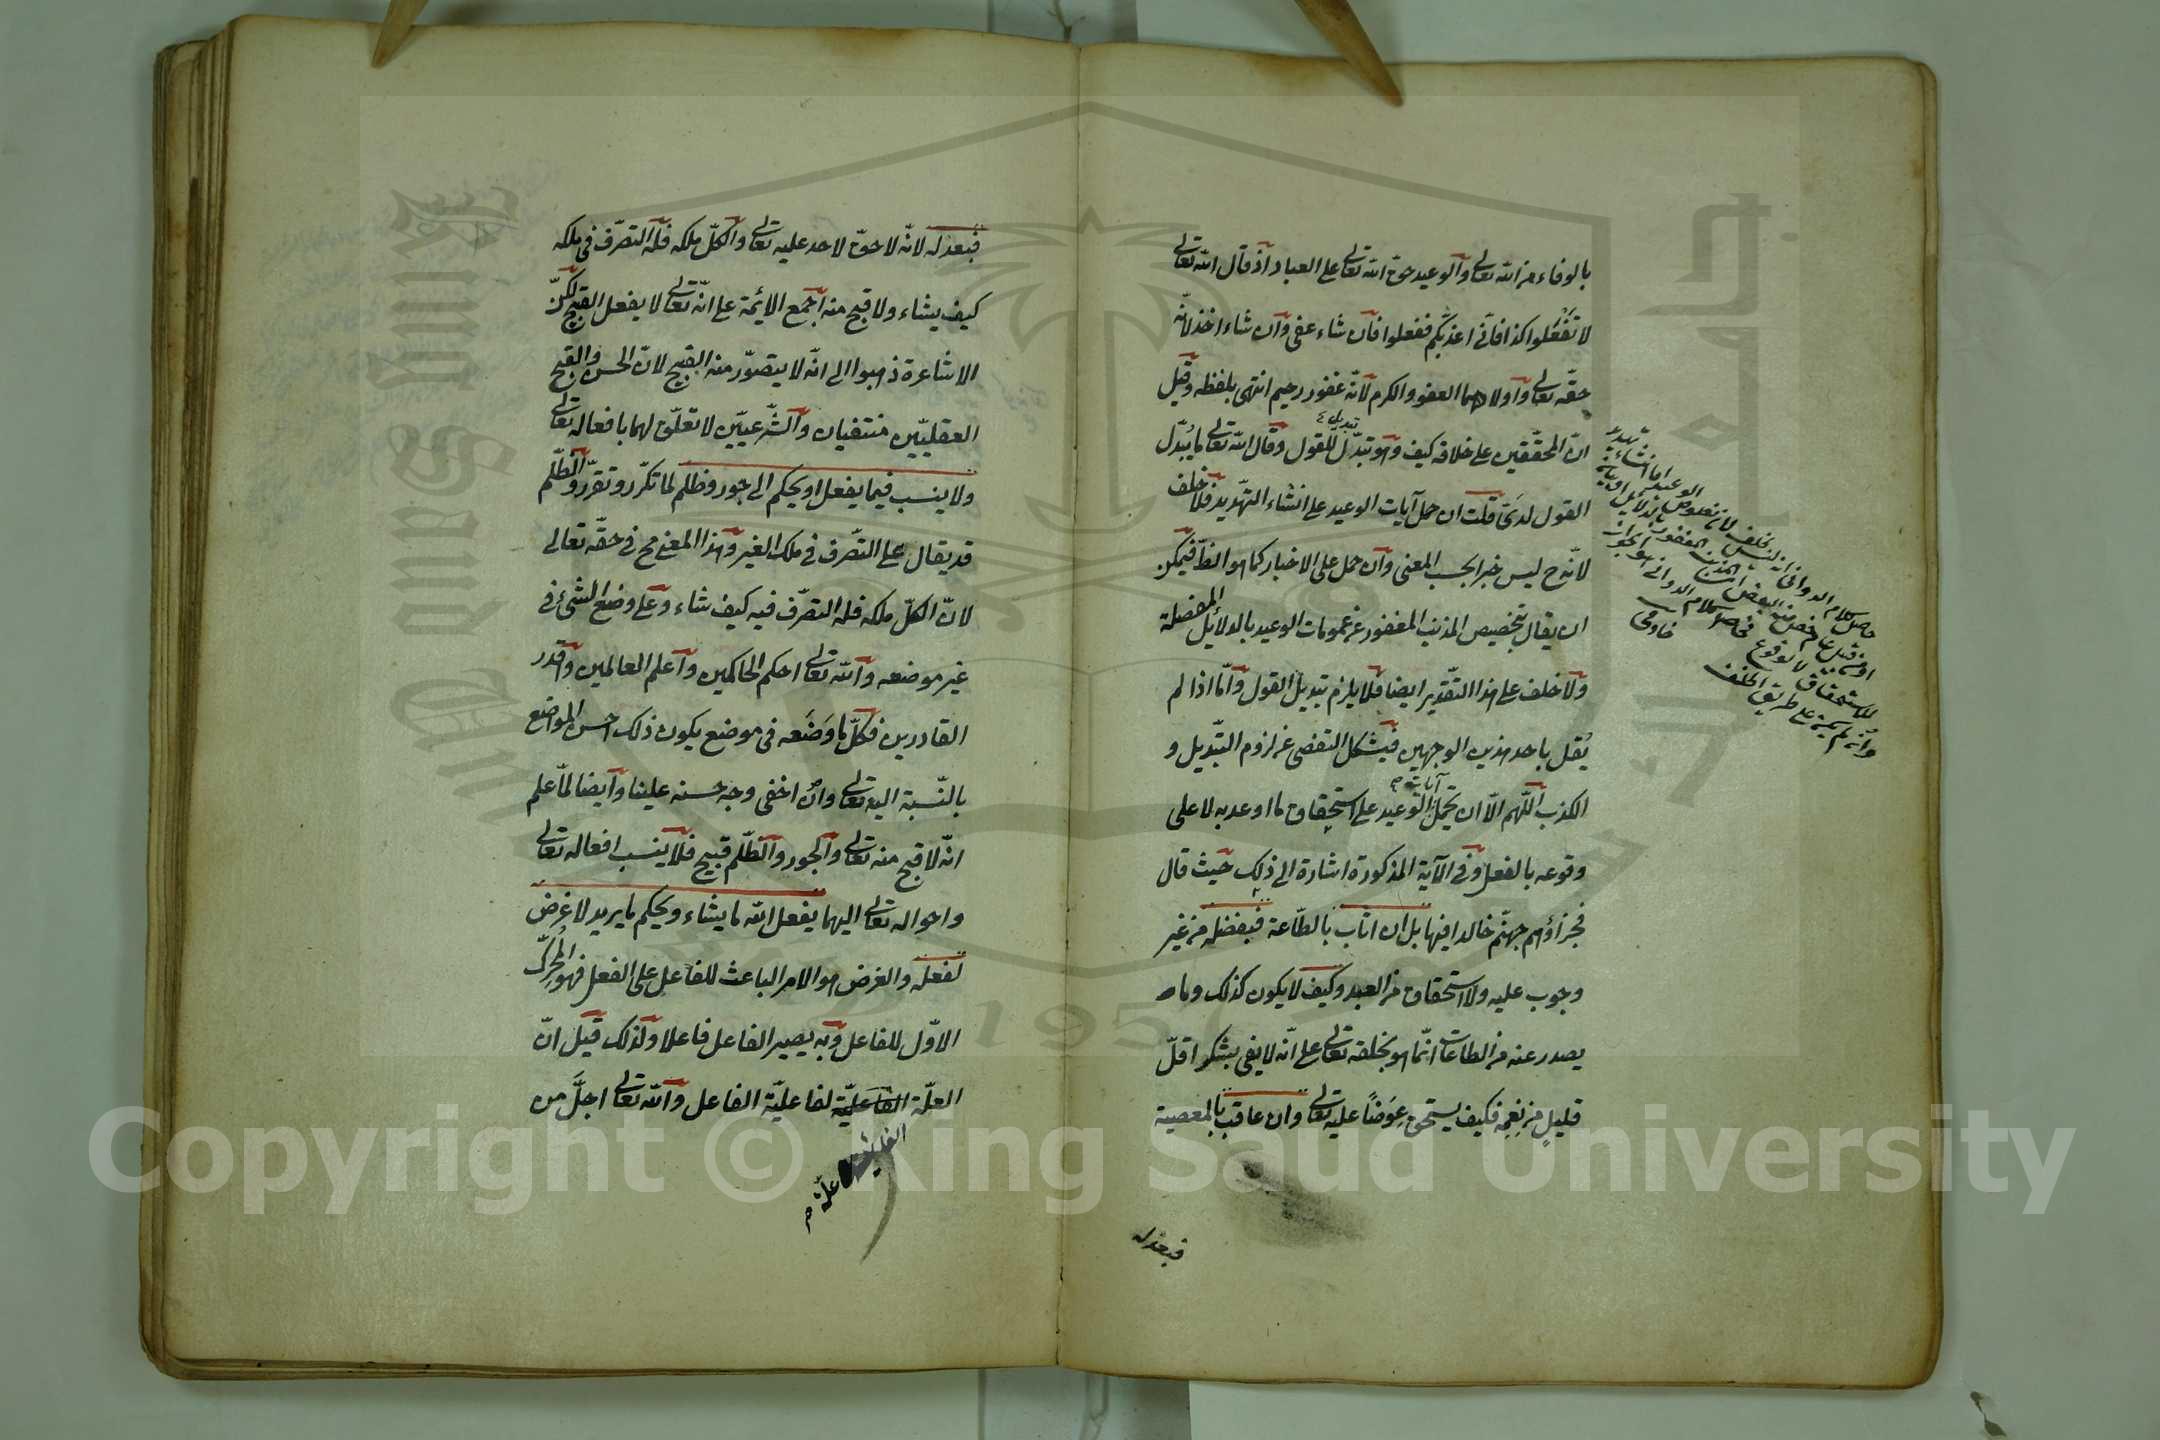 بالوفاء من الله تعالى والوعيد حق الله تعالى على العباد اذ قال الله تعالى
لا تفعلوا كذا فانى اعذبكم ففعلوا فان شاء عفى وان شاء اخذ لانه
حقه تعالى واولاهما العفو والكرم لانه غفور رحيم انتهى بلفظه وقيل
ان المحققين على خلافه كيف وهو تبدل للقول وقال الله تعالى ما يبدل
تبديل
القول لدى قلت ان حمل آيات الوعيد على انشاء التهديد فلا خلف
لانه ح ليس خبرا بحسب المعنى وان حمل على الاخبار كما هو الظ فيمكن
ان يقال بتخصيص المذنب المغفور عن عمومات الوعيد بالدلائل المفصلة
ولا خلف على هذا التقدير ايضا فلا يلزم تبديل القول واما اذا لم
يقل باحد هذين الوجهين فيشكل التفصى عن لزوم التبديل و
الكذب اللهم الا ان يحمل الوعيد على استحقاق ما اوعد به لا على
آيات
وقوعه بالفعل وفى الآية المذكورة اشارة الى ذلك حيث قال
فجزاؤهم جهنم خالدا فيها بل ان اثاب بالطاعة فبفضله من غير
وجوب عليه ولا استحقاق من العبد وكيف لا يكون كذلك وما
يصدر عنه من الطاعات انما هو بخلقه تعالى على انه لا يفى بشكر اقل
قليل من نعمه فكيف يستحق عوضا عليه تعالى وان عاقب بالمعصية
فبعدله
حاصل كلام الدوانى
فبعدله لانه لا حق لاحد عليه تعالى والكل ملكه فله التصرف فى ملكه
كيف يشاء ولا قبح منه اجمع الائمة على انه تعالى لا يفعل القبيح لكن
الاشاعرة ذهبوا الى انه لا يتصور منه القبيح لان الحسن والقبح
العقليين منتفيان والشرعيين لا تعلق لهما بافعاله تعالى
ولا ينسب فيما يفعل او يحكم الى جور وظلم لما تكرر وتقرر والظلم
قد يقال على التصرف فى ملك الغير وهذا المعنى مح فى حقه تعالى
لان الكل ملكه فله التصرف فيه كيف شاء وعلى وضع الشئ فى
غير موضعه والله تعالى احكم الحاكمين واعلم العالمين واقدر
القادرين فكل ما وضعه فى موضع يكون ذلك احسن المواضع
بالنسبة اليه تعالى وان اخفى وجه حسنه علينا وايضا لما علم
انه لا قبح منه تعالى والجور والظلم قبيح فلا ينسب افعاله تعالى
واحواله تعالى اليهما يفعل الله ما يشاء ويحكم ما يريد لا غرض
لفعله والغرض هو الامر الباعث للفاعل على الفعل فهو المحرك
الاول للفاعل وبه يصير الفاعل فاعلا ولذلك قيل ان
العلة الفاعلية لفاعلية الفاعل والله تعالى اجل من
علة
Copyright © King Saud University
1957